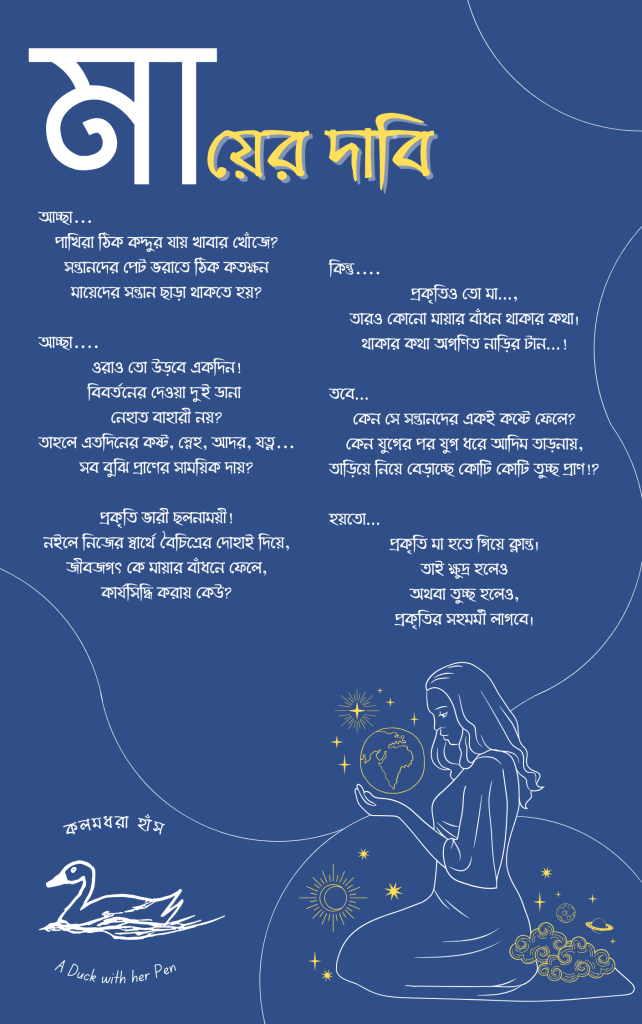 মায়ের দাবি
আচ্ছা...
পাখিরা ঠিক কদ্দুর যায় খাবার খোঁজে?
সন্তানদের পেট ভরাতে ঠিক কতক্ষন
মায়েদের সন্তান ছাড়া থাকতে হয়?
আচ্ছা....
ওরাও তো উড়বে একদিন!
বিবর্তনের দেওয়া দুই ডানা
নেহাত বাহারী নয়?
তাহলে এতদিনের কষ্ট, স্নেহ, আদর, যত্ন...
সব বুঝি প্রাণের সাময়িক দায়?
প্রকৃতি ভারী ছলনাময়ী!
নইলে নিজের স্বার্থে বৈচিত্রের দোহাই দিয়ে,
জীবজগৎ কে মায়ার বাঁধনে ফেলে,
কার্যসিদ্ধি করায় কেউ?
কিন্তু....
প্রকৃতিও তো মা...,
তারও কোনো মায়ার বাঁধন থাকার কথা।
থাকার কথা অগণিত নাড়ির টান...!
তবে...
কেন সে সন্তানদের একই কষ্টে ফেলে?
কেন যুগের পর যুগ ধরে আদিম তাড়নায়,
তাড়িয়ে নিয়ে বেড়াচ্ছে কোটি কোটি তুচ্ছ প্রাণ!?
হয়তো...
প্রকৃতি মা হতে গিয়ে ক্লান্ত।
তাই ক্ষুদ্র হলেও
অথবা তুচ্ছ হলেও,
প্রকৃতির সহমর্মী লাগবে।
কলমধরা হাঁস
A Duck with her Pen